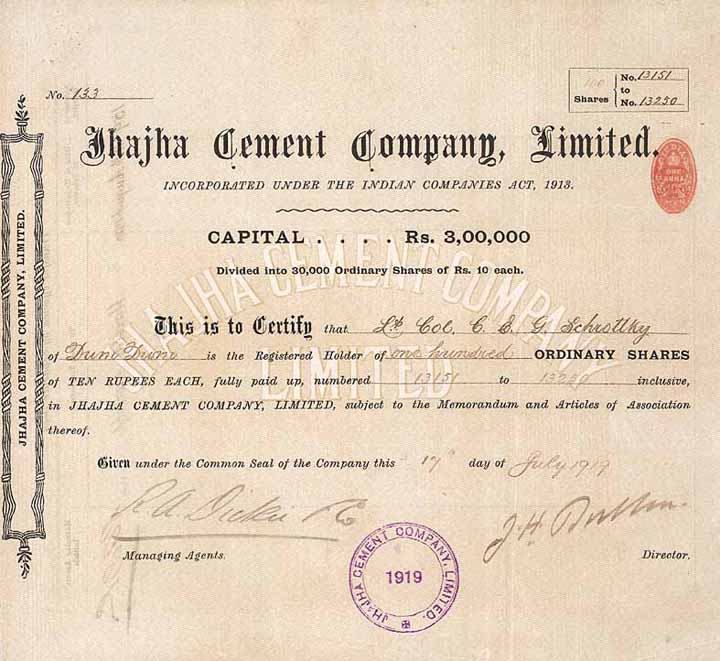 No. 133
100 Shares { No. 13151
to
No. 13250
Jhajha Cement Company, Limited.
INCORPORATED UNDER THE INDIAN COMPANIES ACT, 1913.
ONE ANNA
CAPITAL . . . . Rs. 3,00,000
Divided into 30,000 Ordinary Shares of Rs. 10 each.
JHAJHA CEMENT COMPANY
LIMITED
This is to Certify that Lt. Col. C. E. G. Schrottky
of Dum Dum is the Registered Holder of one hundred ORDINARY SHARES
of TEN RUPEES EACH, fully paid up, numbered 13151 to 13250 inclusive,
in JHAJHA CEMENT COMPANY, LIMITED, subject to the Memorandum and Articles of Association
thereof.
Given under the Common Seal of the Company this 17th day of July 1919
Managing Agents.
Director.
JHAJHA CEMENT COMPANY, LIMITED.
1919
JHAJHA CEMENT COMPANY, LIMITED.